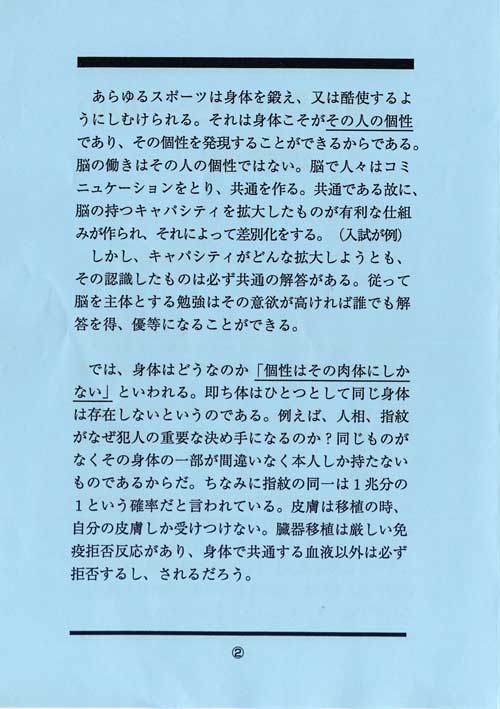 あらゆるスポーツは身体を鍛え、又は酷使するよ
うにしむけられる。それは身体こそがその人の個性
であり、その個性を発現することができるからである。
脳の働きはその人の個性ではない。脳で人々はコミ
ニュケーションをとり、共通を作る。共通である故に、
脳の持つキャパシティを拡大したものが有利な仕組
みが作られ、それによって差別化をする。（入試が例）
しかし、キャパシティがどんな拡大しようとも、
その認識したものは必ず共通の解答がある。従って
脳を主体とする勉強はその意欲が高ければ誰でも解
答を得、優等になることができる。
では、身体はどうなのか「個性はその肉体にしか
ない」といわれる。即ち体はひとつとして同じ身体
は存在しないというのである。例えば、人相、指紋
がなぜ犯人の重要な決め手になるのか？同じものが
なくその身体の一部が間違いなく本人しか持たない
ものであるからだ。ちなみに指紋の同一は１兆分の
１という確率だと言われている。皮膚は移植の時、
自分の皮膚しか受けつけない。臓器移植は厳しい免
疫拒否反応があり、身体で共通する血液以外は必ず
拒否するし、されるだろう。
②